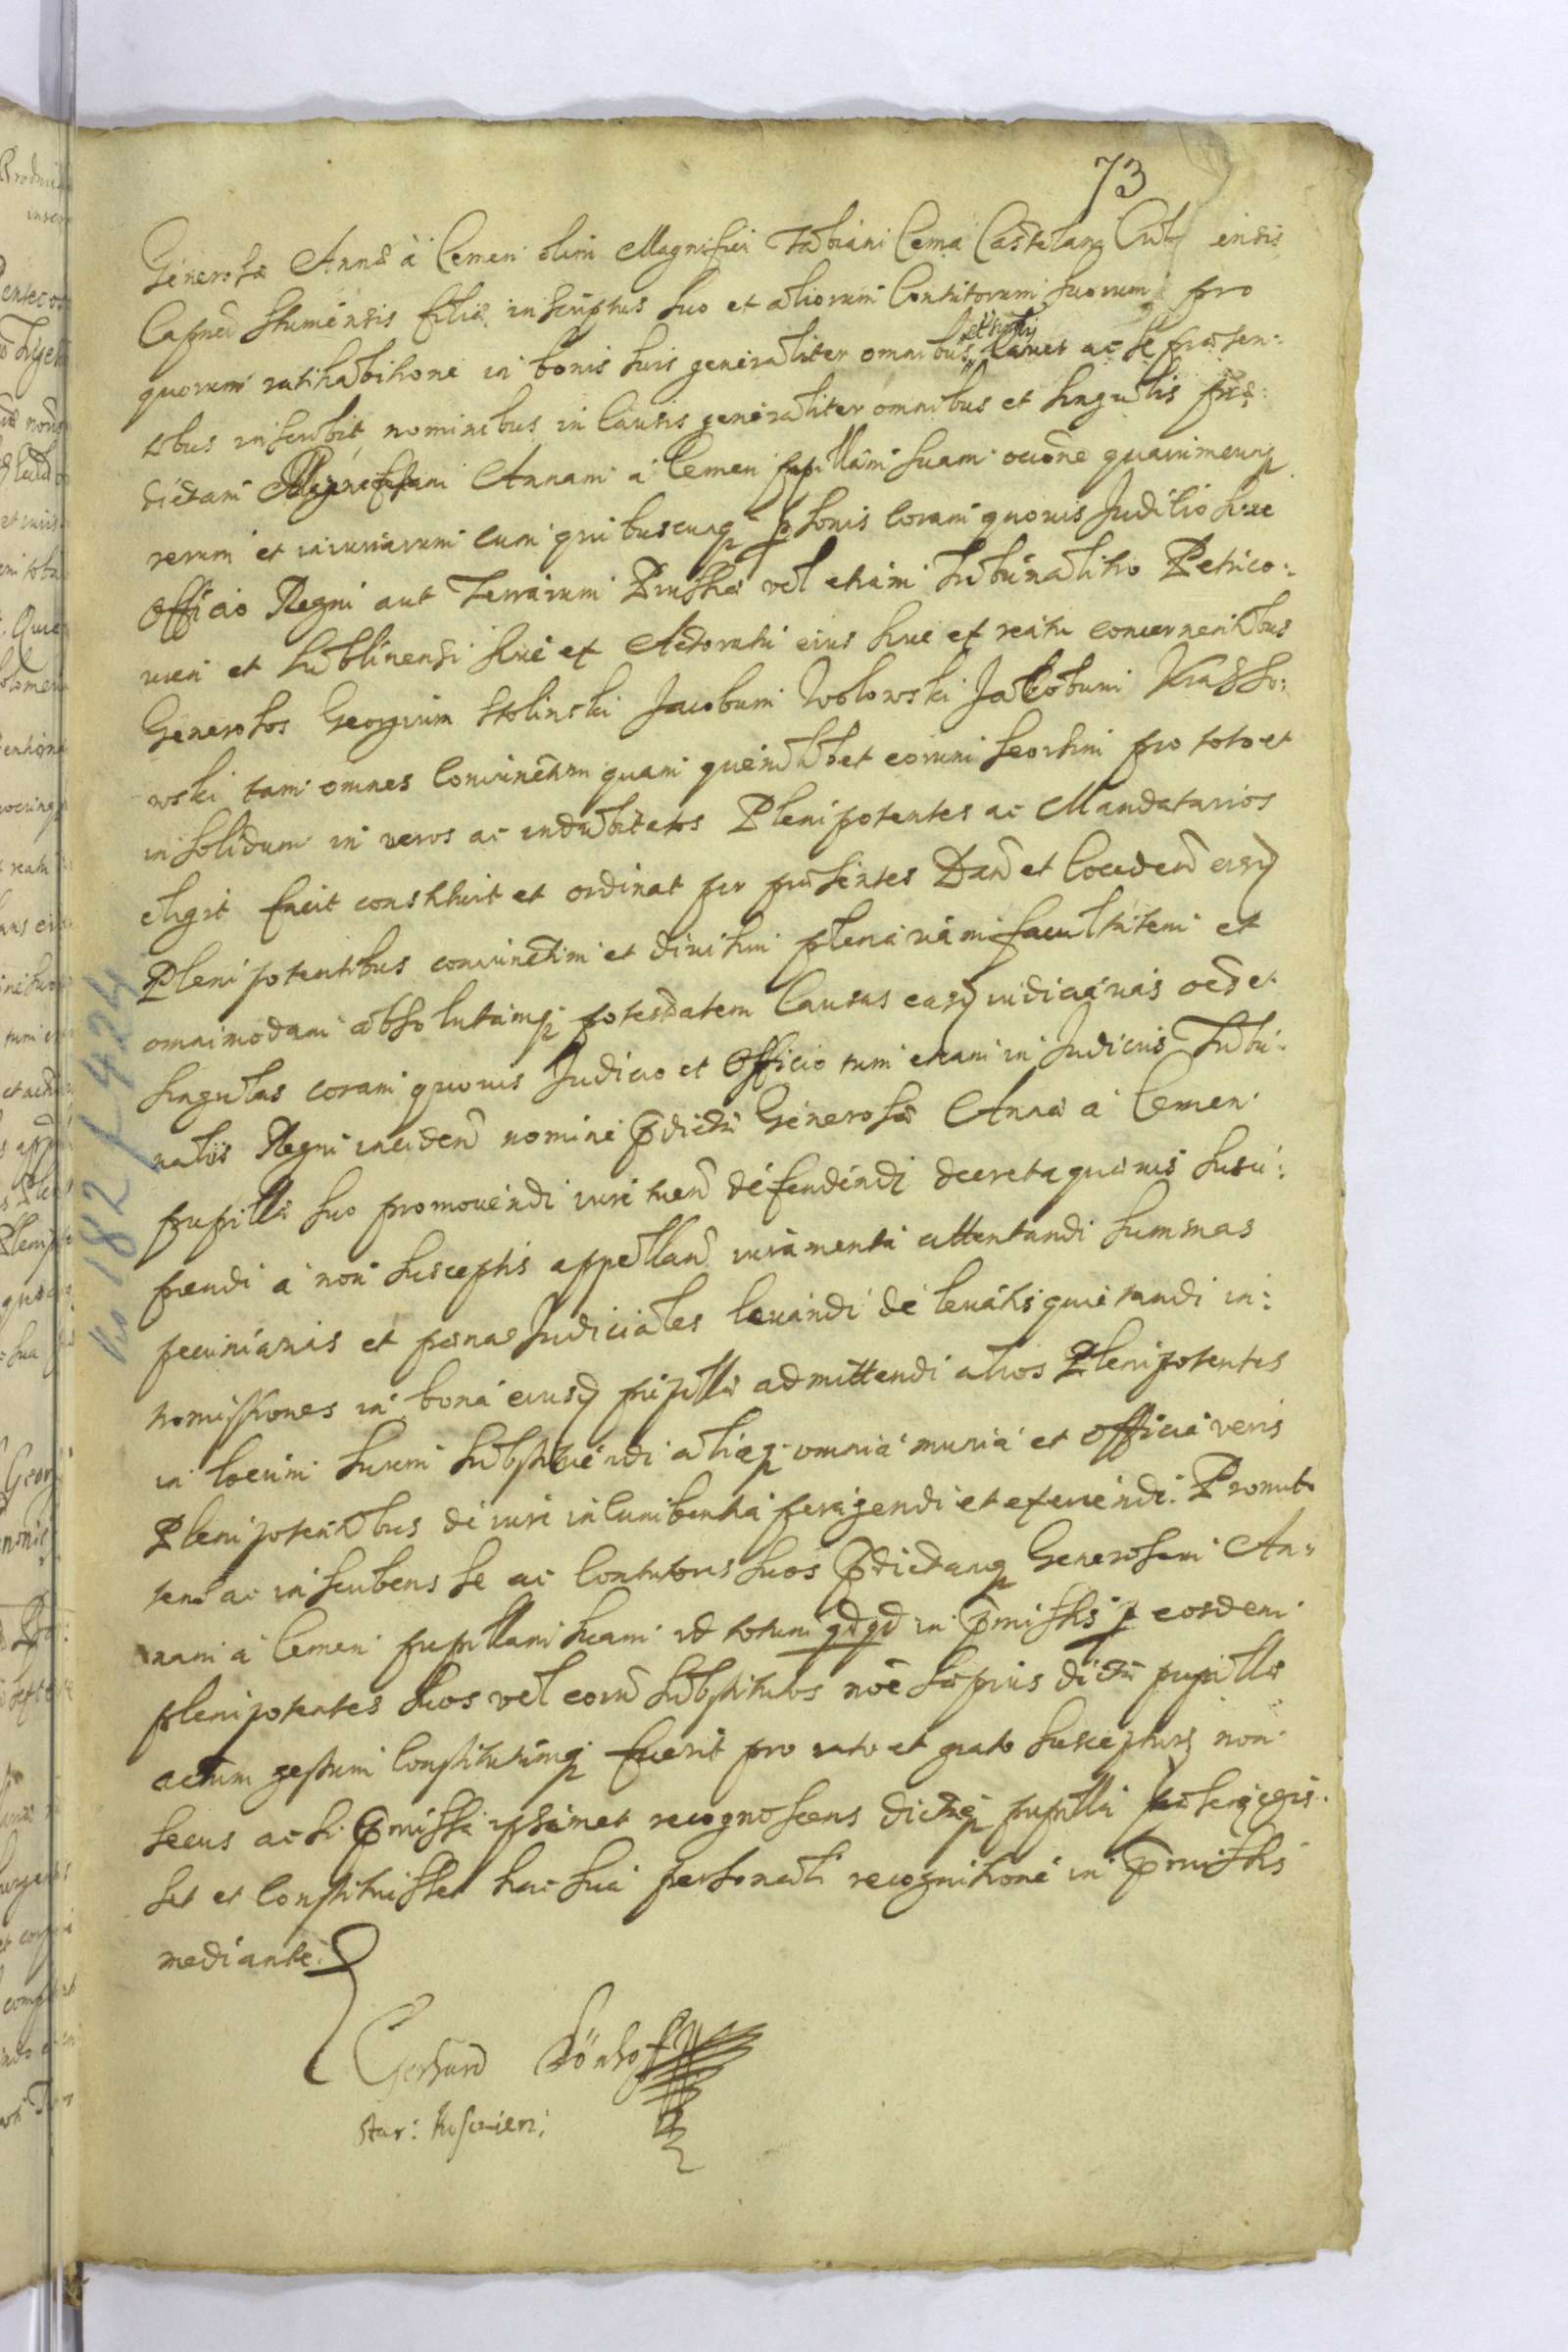 73
Generosæ Annæ à Cemen olim Magnifici Fabiani Cema Castelani Cul ensis
Capnei Stumensis filiæ inscriptus suo et aliorum Contutorum suorum pro
quorum ratihabitione in bonis suis generaliter omnibus et sin cavet ac se præsen:
tibus inscribit nominibus in causis generaliter omnibus et singulis præ:
dictam Annam à Cemen pupillam suam occone quarumcunq
rerum et iniuriarum cum quibuscunq psonis coram quovis Juditio sive
Officio Regni aut Terrarum Prussiæ vel etiam Tribunalitio Petrico:
vien et Lublinensi sive ex Actoratu eius sive ex reatu concernentibus
Generosos Georgium Stolinski Jacobum Wolowski Jacobum Krasso:
wski tam omnes coniunctim quam quemlibet eorum seorsim pro toto et
in solidum in veros ac indubitatos Plenipotentes ac Mandatarios
eligit facit constituit et ordinat per præsentes Dan et Conceden eisd
Plenipotentibus coniunctim et divisim plenariam facultatem et
omnimodam absolutamq potestatem Causas easd iudiciarias oes et
singulas coram quovis Judicio et Officio tum etiam in Judiciis Tribu:
nalis Regni ineiden nomine pdictæ Generosæ Annæ à Cemen
pupillæ suo promovendi iure tuen defendendi decreta quævis susci:
piendi à non susceptis appellan iuramenta attentandi summas
pecuniarias et pænas Judiciales levandi de levatis quietandi in:
romissiones in bona eiusd pupillæ admittendi alios Plenipotentes
in locum suum substituendi aliaq omnia munia et officia veris
Plenipotentibus de iure incumbentia peragendi et exequendi. Promit
tens ac inscribens se ac contutores suos pdictamq Generosam An
nam à Cemen pupillam suam id totum qdqd in pmissis p eosdem
plenipotentes suos vel eorum substitutos noe sæpius dictæ pupillæ
actum gestum constitutumq fuerit pro rato et grato suscepturos non
secus ac si pmissa ipsamet recognoscens dictaq pupilla peregis:
set et constituisset hac sua personali recognitione in pmissis
mediante.
Gerhard Dönhoff
Star: Kosciern:
No 182 f 424